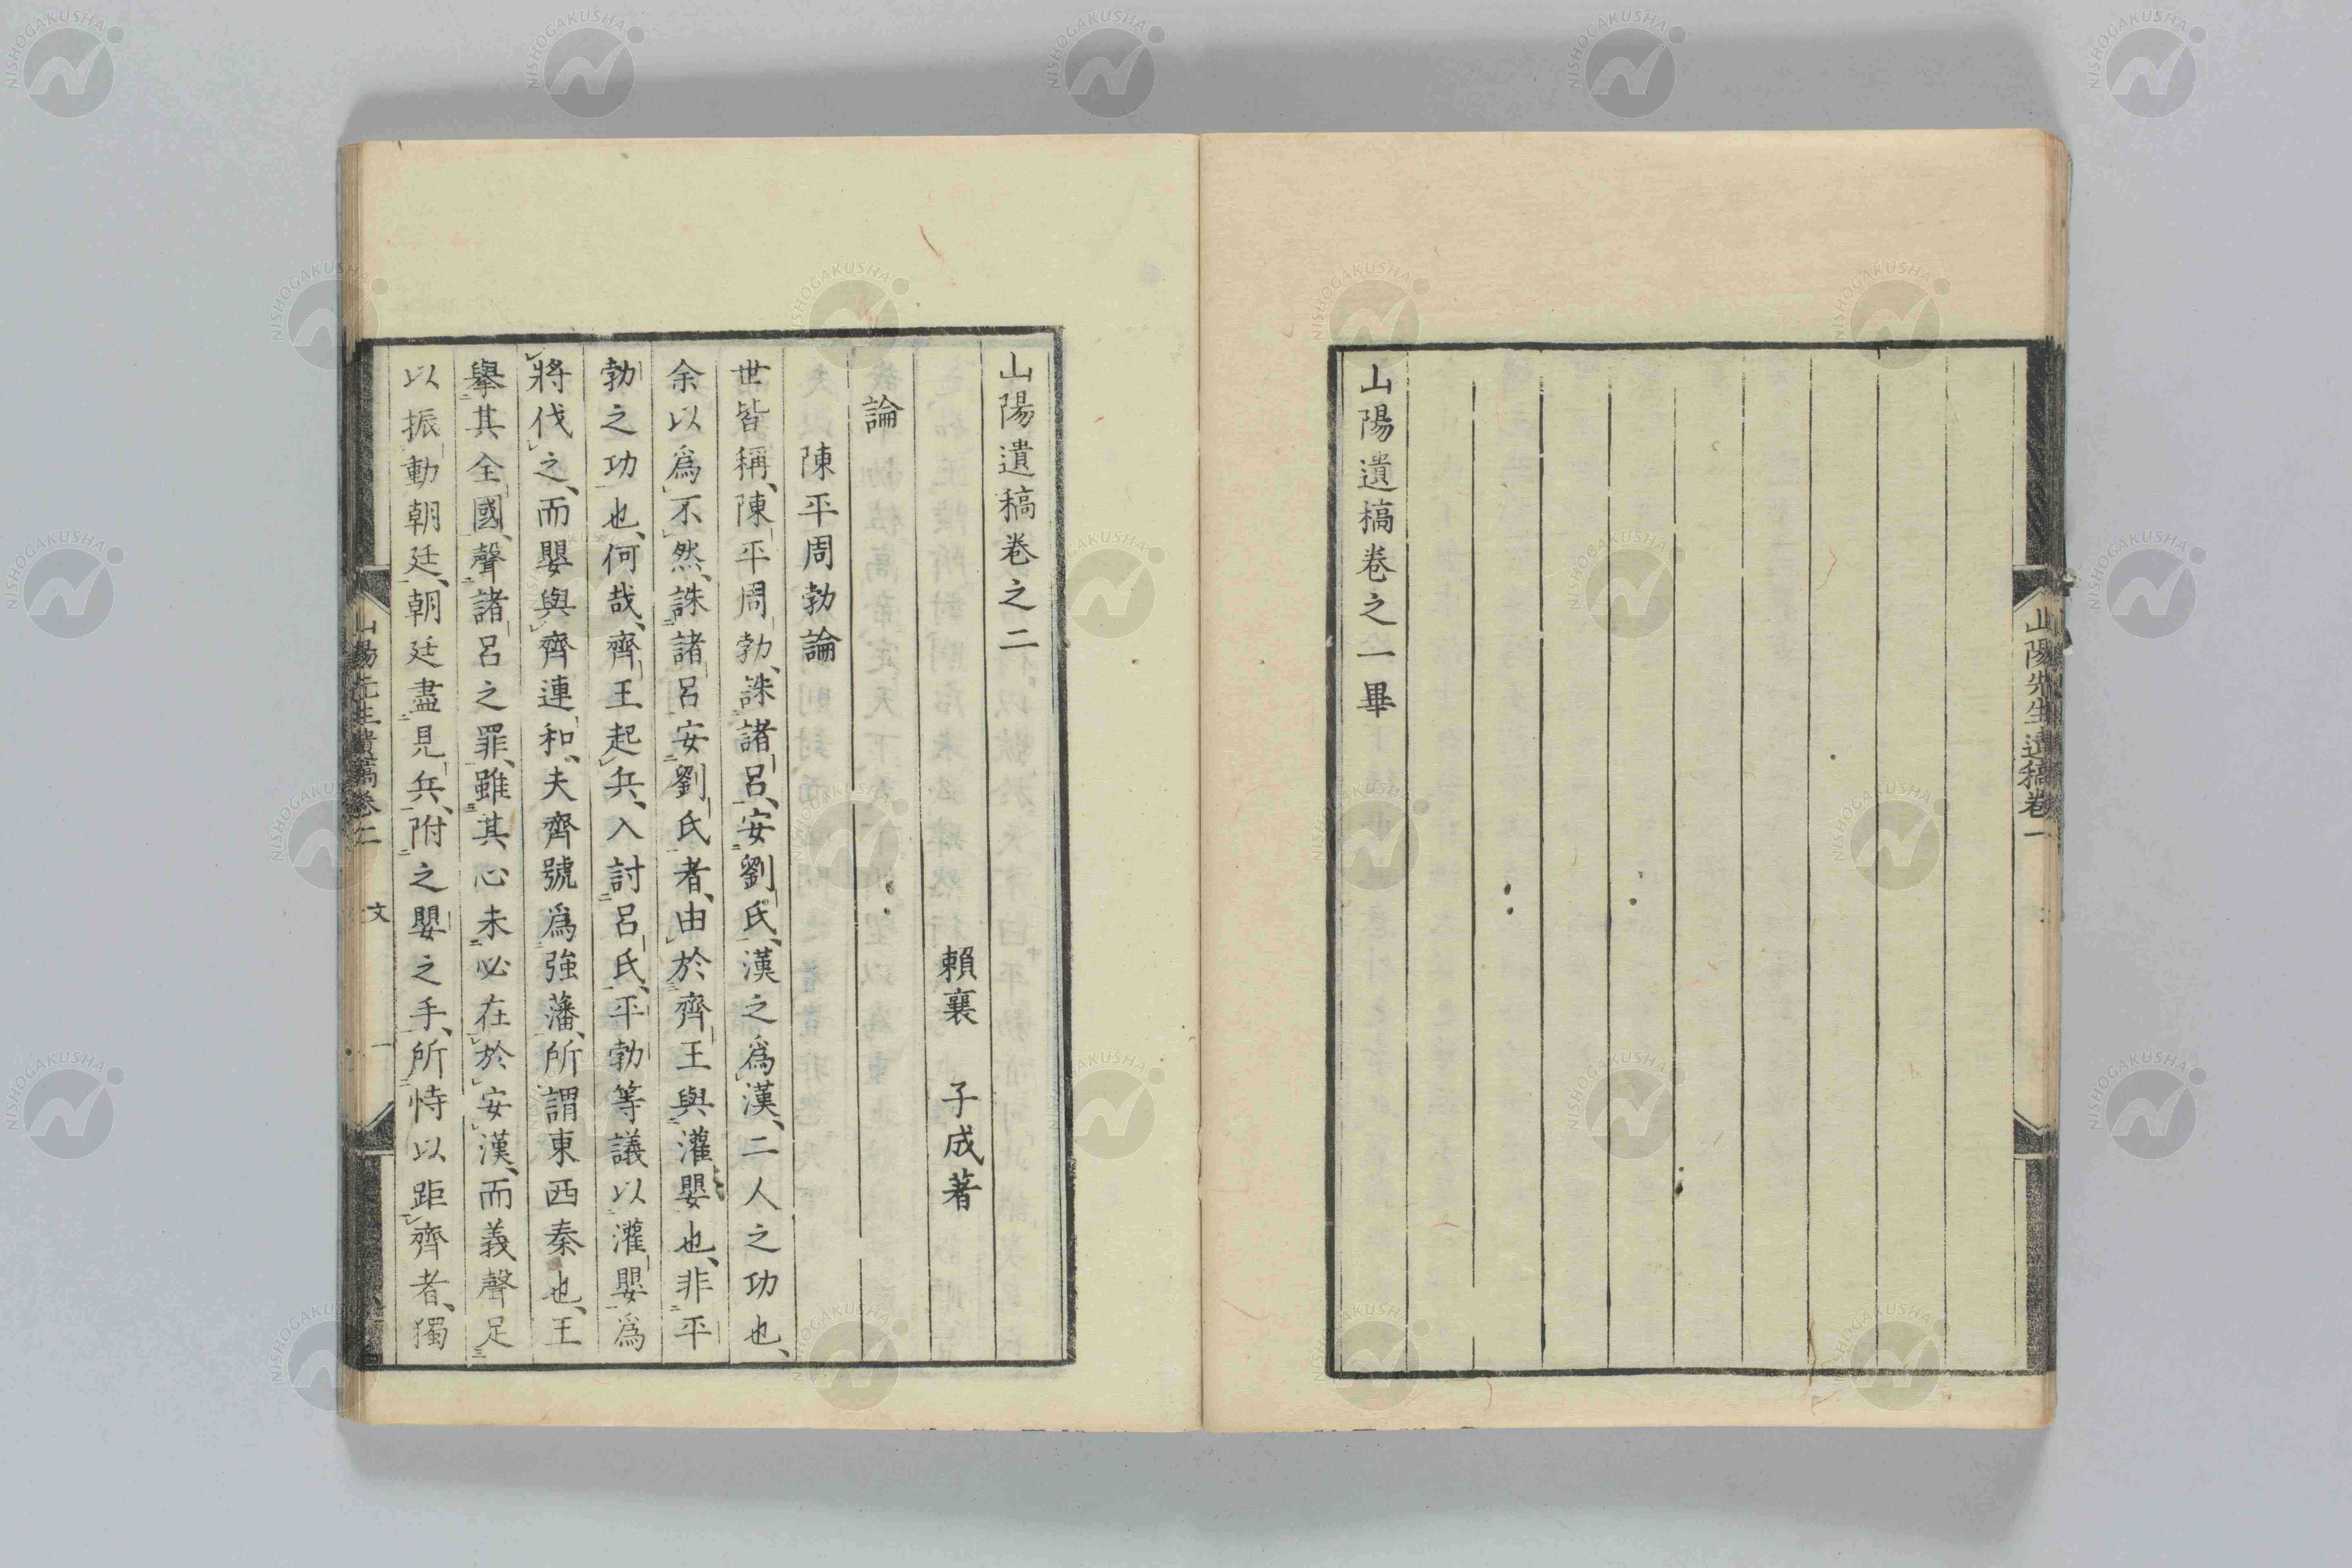 山陽先生遺稿卷一
山陽遺稿卷之一畢
山陽遺稿卷之二
賴襄 子成著
論
陳平周勃論
世皆稱、陳平周勃、誅諸呂、安劉氏、漢之爲漢、二人之功也、
余以爲不然、誅諸呂安劉氏者、由於齊王與灌嬰也、非平
勃之功也、何哉、齊王起兵、入討呂氏、平勃等議以灌嬰爲
將伐之、而嬰與齊連和、夫齊號爲強藩、所謂東西秦也、王
擧其全國、聲諸呂之罪、雖其心未必在於安漢、而義聲足
以振動朝廷、朝廷盡見兵、附之嬰之手、所恃以距齊者、獨
山陽先生遺稿卷二 文 一
NISHOGAKUSHA